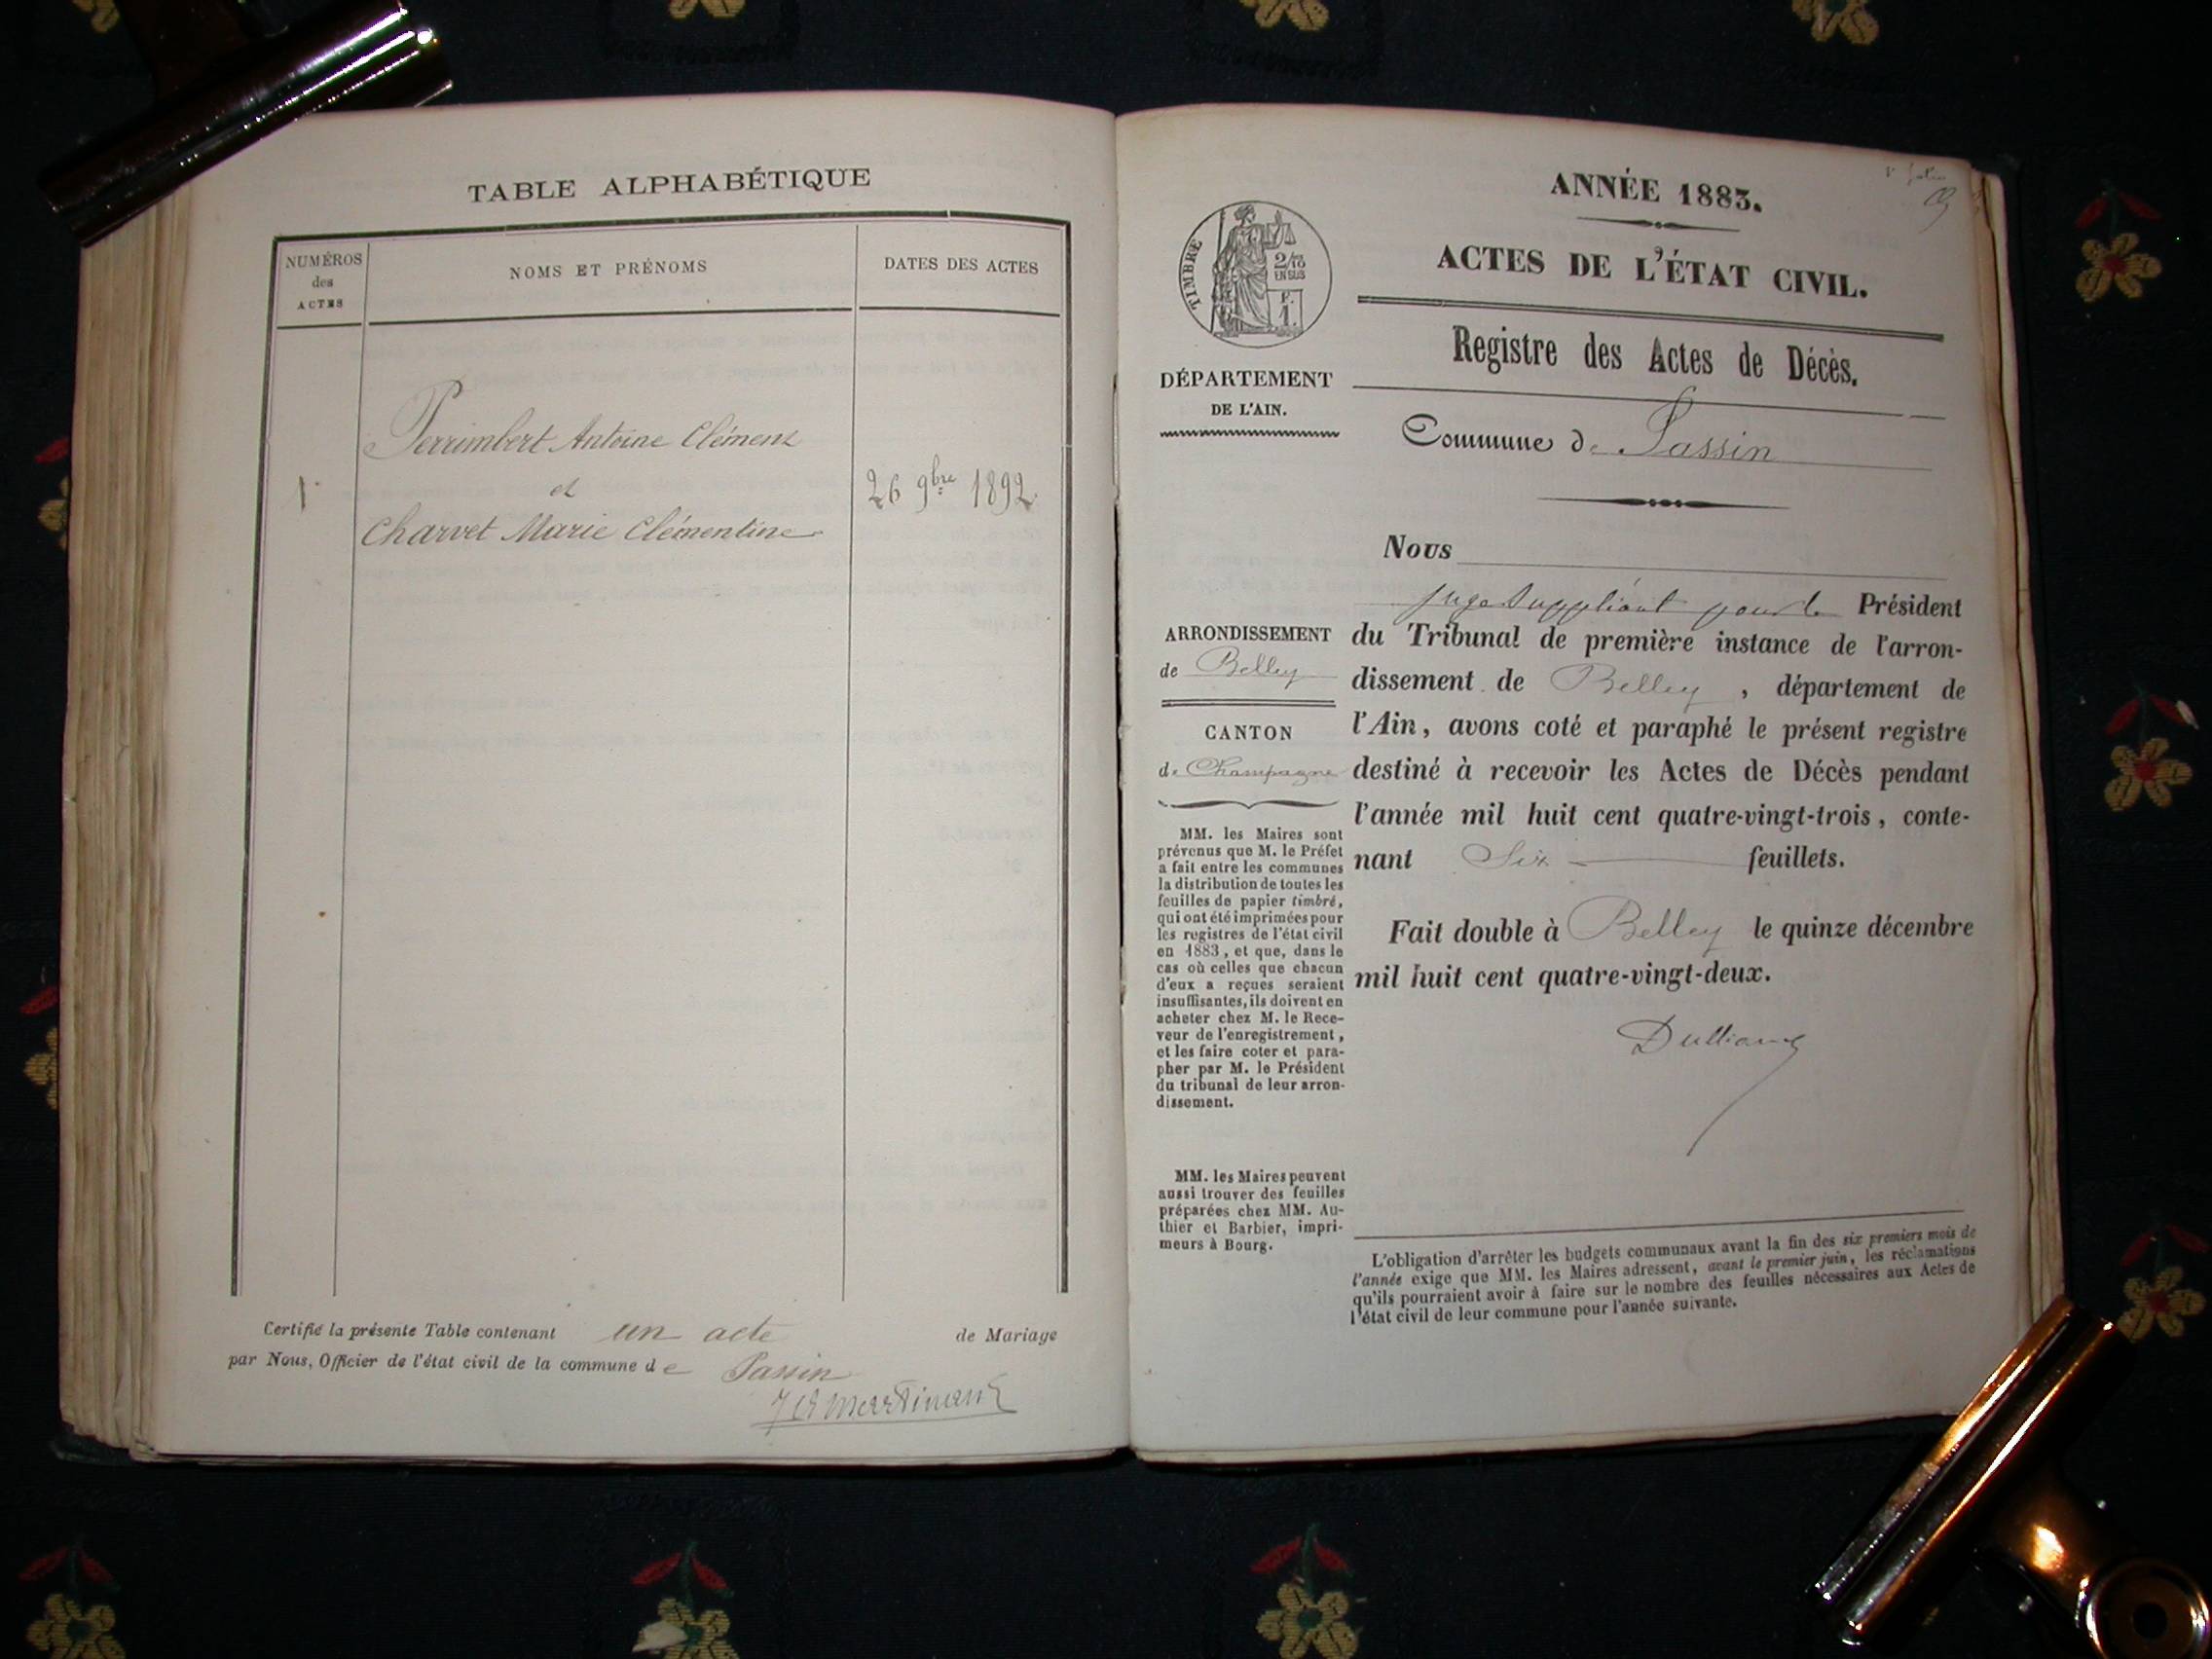 TABLE ALPHABÉTIQUE
NUMÉROS
des
ACTES
NOMS ET PRÉNOMS
DATES DES ACTES
Perrimbert Antoine Clément
1
et
26 9bre 1892
Charvet Marie Clémentine
Certifié la présente Table contenant un acte de Mariage
par Nous, Officier de l'état civil de la commune de Passin
ANNÉE 1883.
ACTES DE L'ÉTAT CIVIL.
Registre des Actes de Décès.
TIMBRE
2/10
EN SUS
F.
1.
DÉPARTEMENT
DE L'AIN.
Commune de Passin
Nous
juge suppléant pour le Président
du Tribunal de première instance de l'arron-
dissement de Belley, département de
l'Ain, avons coté et paraphé le présent registre
destiné à recevoir les Actes de Décès pendant
l'année mil huit cent quatre-vingt-trois, conte-
nant Six feuillets.
Fait double à Belley le quinze décembre
mil huit cent quatre-vingt-deux.
ARRONDISSEMENT
de Belley
CANTON
de Champagne
MM. les Maires sont
prévenus que M. le Préfet
a fait entre les communes
la distribution de toutes les
feuilles de papier timbré,
qui ont été imprimées pour
les registres de l'état civil
en 1883, et que, dans le
cas où celles que chacun
d'eux a reçues seraient
insuffisantes, ils doivent en
acheter chez M. le Rece-
veur de l'enregistrement,
et les faire coter et para-
pher par M. le Président
du tribunal de leur arron-
dissement.
MM. les Maires peuvent
aussi trouver des feuilles
préparées chez MM. Au-
thier et Barbier, impri-
meurs à Bourg.
L'obligation d'arrêter les budgets communaux avant la fin des six premiers mois de
l'année exige que MM. les Maires adressent, avant le premier juin, les réclamations
qu'ils pourraient avoir à faire sur le nombre des feuilles nécessaires aux Actes de
l'état civil de leur commune pour l'année suivante.